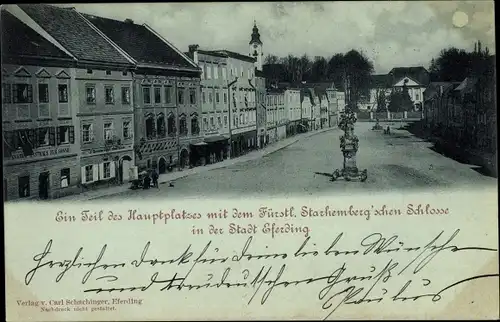 Ein Teil des Hauptplatzes mit dem Fürstl. Starhemberg'schen Schlosse
in der Stadt Eferding
Herzlichen Dank für Deine lieben Wünsche
und freundschaftlichen Gruß
Paulus
Verlag v. Carl Schachinger, Eferding
Nachdruck nicht gestattet.